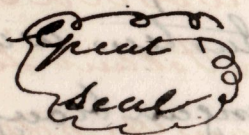 Great
Seal